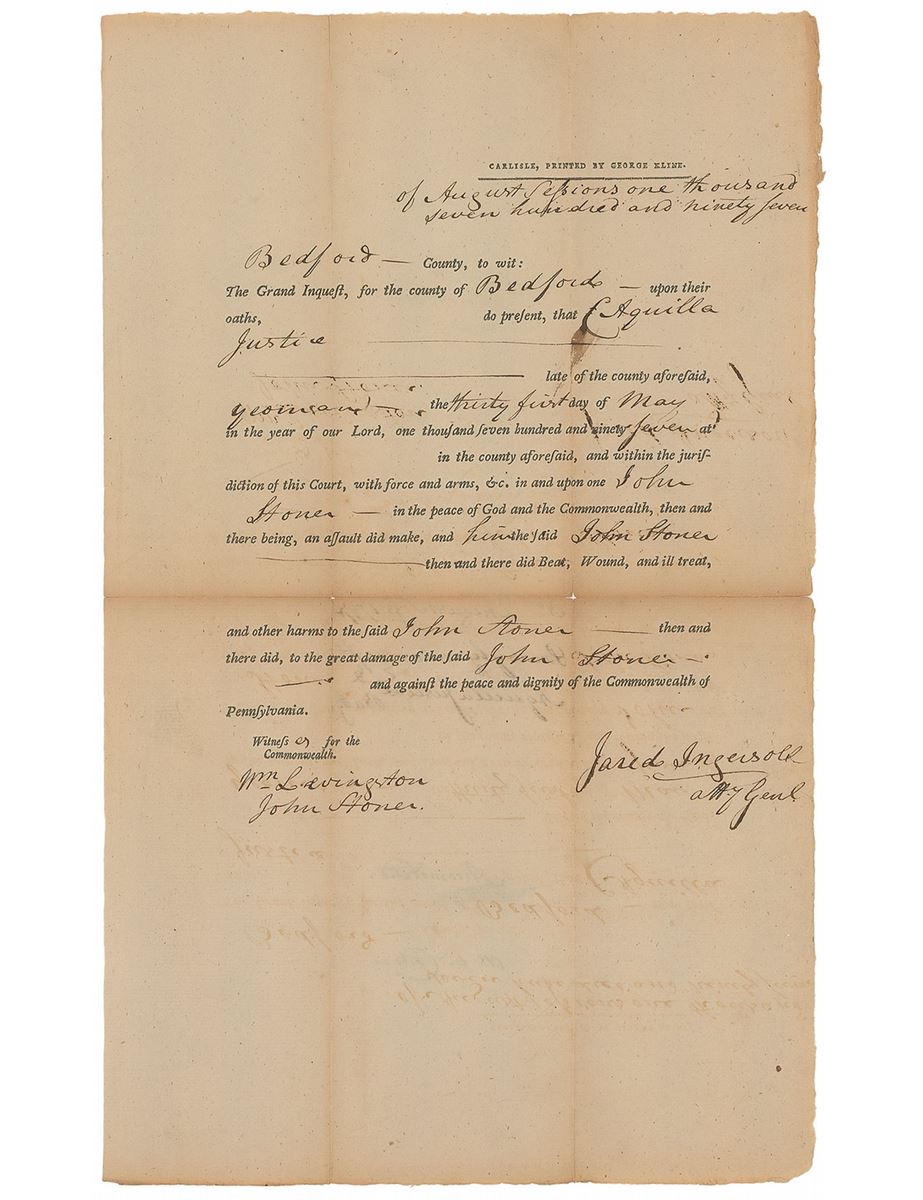 CARLISLE, PRINTED BY GEORGE KLINE.
of August Seſsions one thousand
seven hundred and ninety seven
Bedford — County, to wit:
The Grand Inqueſt, for the county of Bedford — upon their
oaths, do preſent, that Aquilla
Justice
late of the county aforeſaid,
yeoman — the thirty first day of May
in the year of our Lord, one thouſand ſeven hundred and ninety seven at
in the county aforeſaid, and within the juriſ-
diction of this Court, with force and arms, &c. in and upon one John
Stoner — in the peace of God and the Commonwealth, then and
there being, an aſſault did make, and him the ſaid John Stoner
then and there did Beat, Wound, and ill treat,
and other harms to the ſaid John Stoner — then and
there did, to the great damage of the ſaid John Stoner —
and againſt the peace and dignity of the Commonwealth of
Pennſylvania.
Witneſs es for the
Commonwealth.
Wm Levingston
John Stoner.
Jared Ingersoll
atty Genl